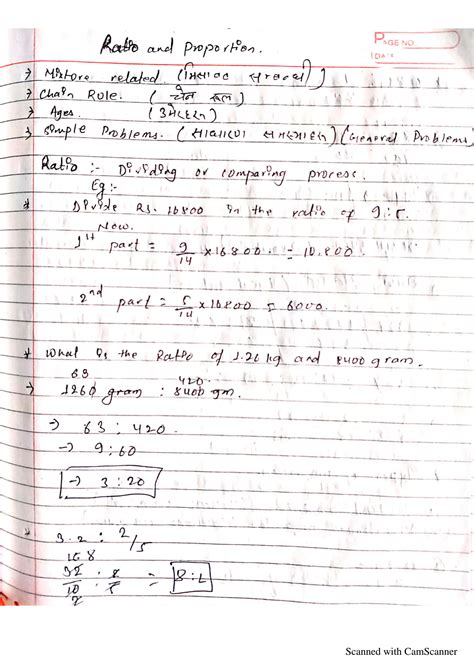 Ratio and Proportion.
PAGE NO.
DATE
→ Mixture related. (मिलावट सम्बन्धी)
→ Chain Rule. (चेन रूल)
→ Ages.
→ Simple Problems. (General Problems)
Ratio :- Dividing or comparing process.
Eg:-
* Divide Rs. 16800 in the ratio of 9:5.
Now.
1st part = 9/14 × 16800 = 10,800
2nd part = 5/14 × 16800 = 6000.
* What is the Ratio of 1.26 kg and 8400 gram.
63 420
→ 1260 gram : 8400 gm.
→ 63 : 420
→ 9 : 60
→ 3 : 20
3.2 : 2/5
16 8
32/10 : 2/5 = 8:1
2
Scanned with CamScanner